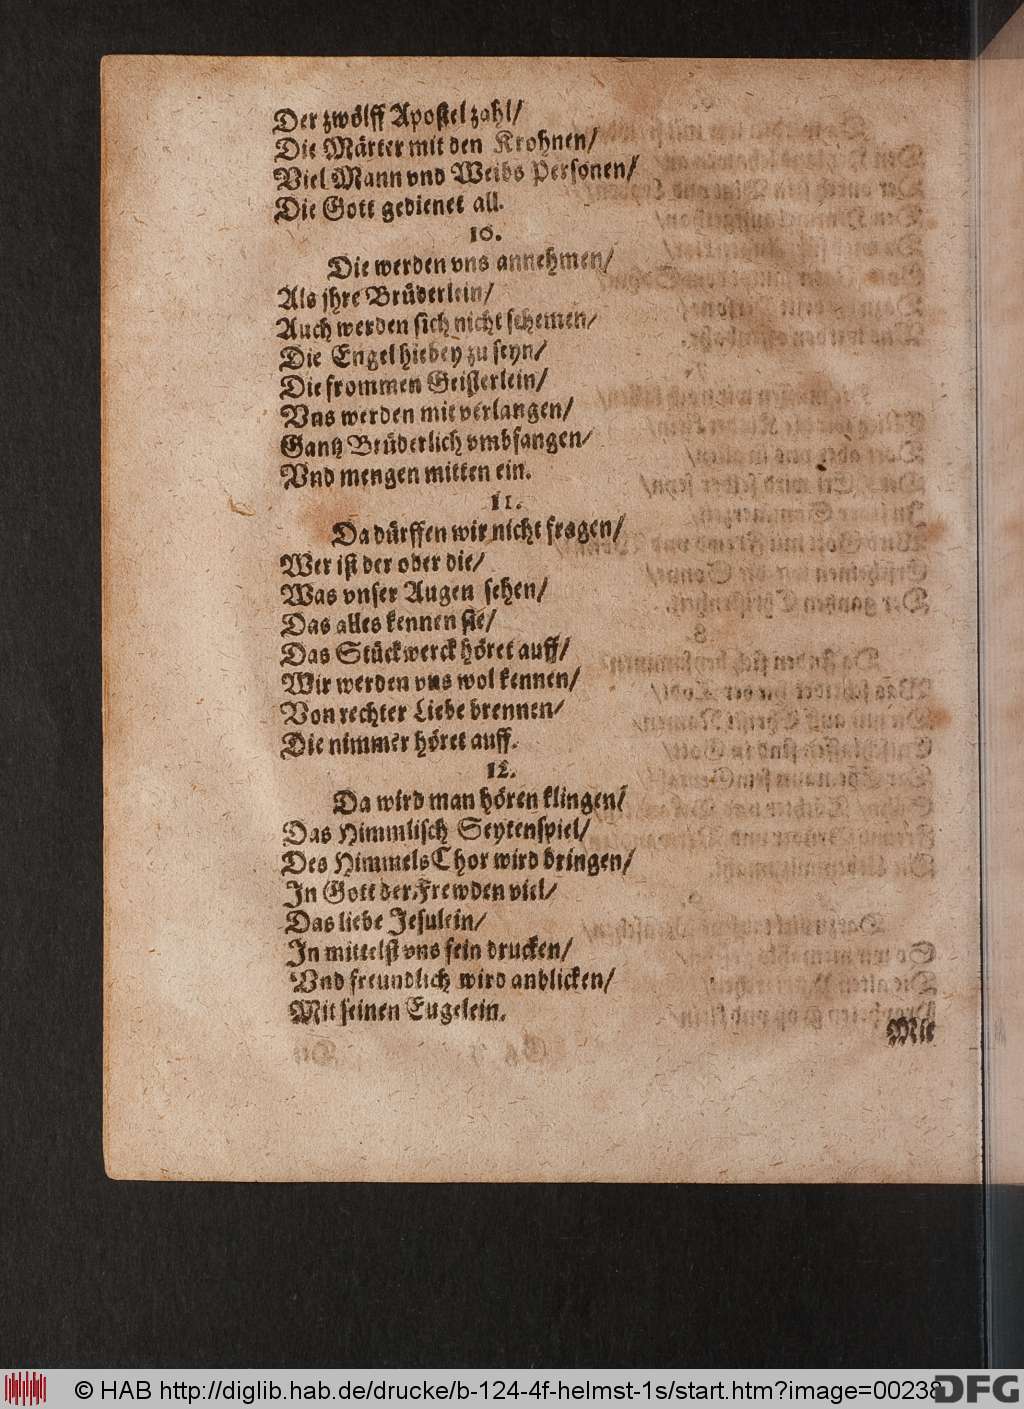 Der zwölff Apostel zahl/
Die Märter mit den Krohnen/
Viel Mann vnd Weibs Personen/
Die Gott gedienet all.
10.
Die werden vns annehmen/
Als jhre Brüderlein/
Auch werden sich nicht schemen/
Die Engel hiebey zu seyn/
Die frommen Geisterlein/
Vns werden mit verlangen/
Gantz Brüderlich vmbfangen/
Vnd mengen mitten ein.
11.
Da dürffen wir nicht fragen/
Wer ist der oder die/
Was vnser Augen sehen/
Das alles kennen sie/
Das Stückwerck höret auff/
Wir werden vns wol kennen/
Von rechter Liebe brennen/
Die nimmer höret auff.
12.
Da wird man hören klingen/
Das Himmlisch Seytenspiel/
Des Himmels Chor wird bringen/
In Gott der Frewden viel/
Das liebe Jesulein/
In mittelst vns fein drucken/
Vnd freundlich wird anblicken/
Mit seinen Eugelein.
Mit
© HAB http://diglib.hab.de/drucke/b-124-4f-helmst-1s/start.htm?image=00238
DFG